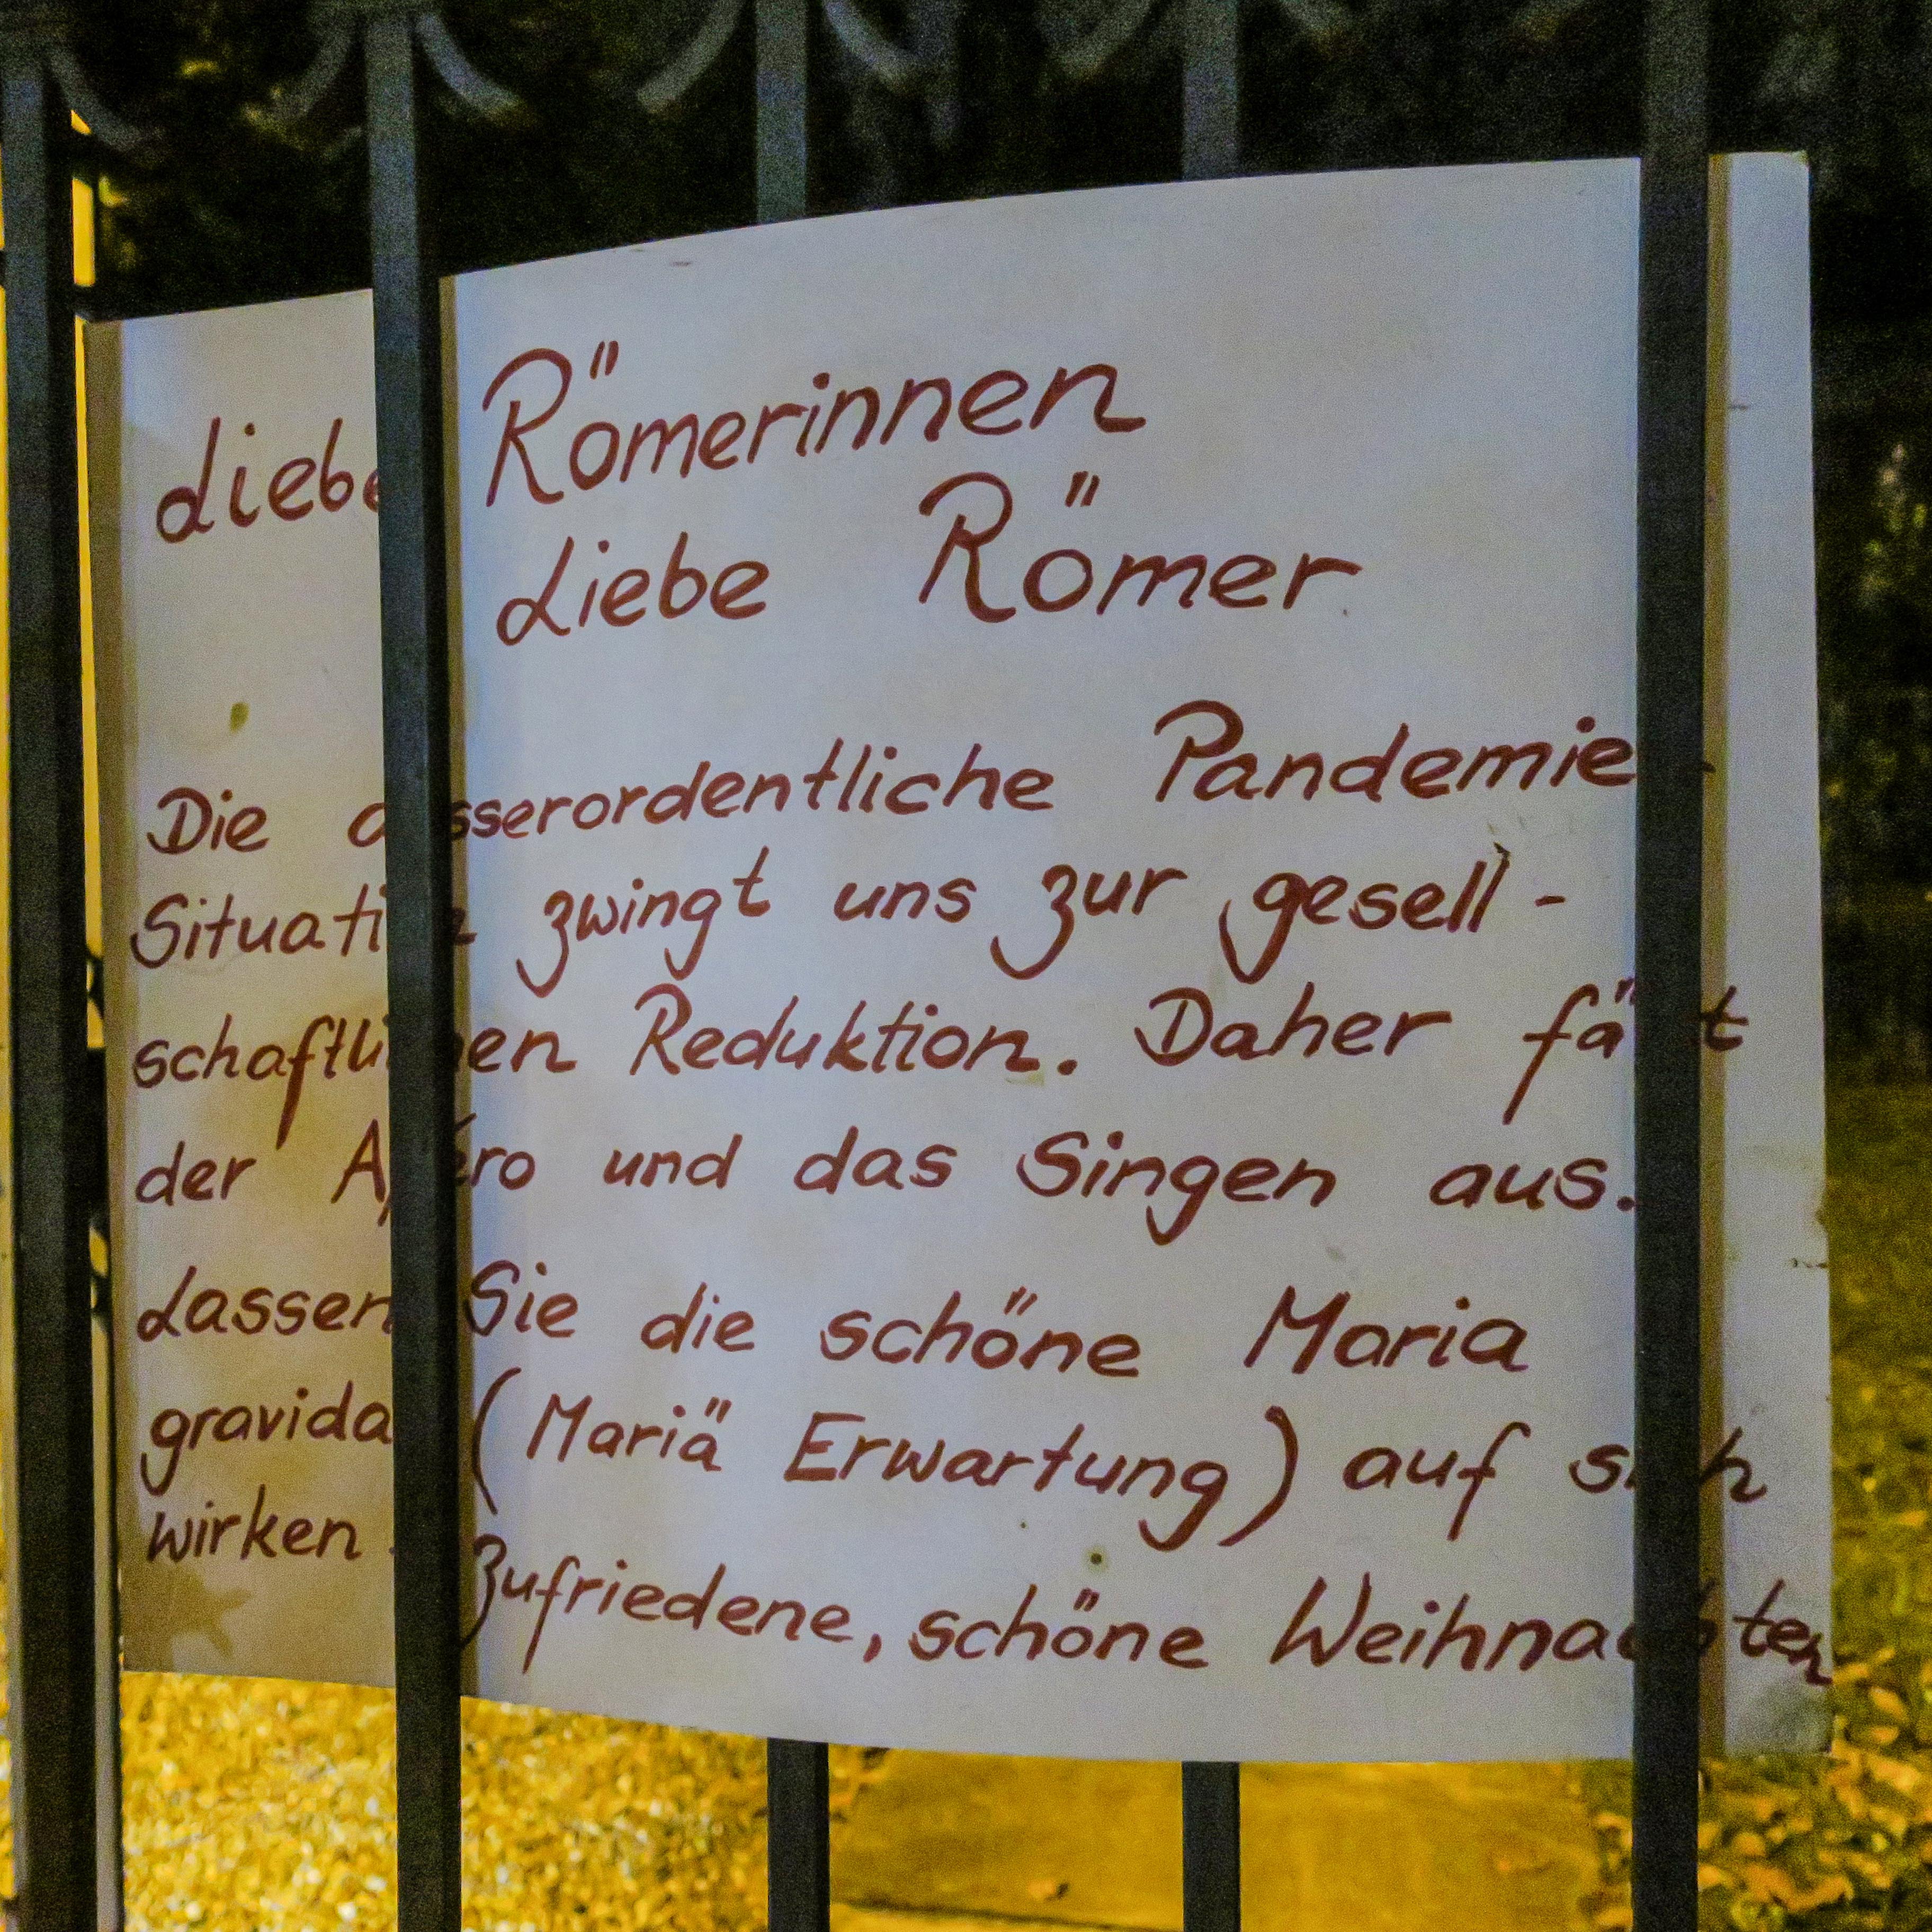 Liebe Römerinnen
Liebe Römer
Die ausserordentliche Pandemie-
Situation zwingt uns zur gesell-
schaftlichen Reduktion. Daher fällt
der Apéro und das Singen aus.
Lassen Sie die schöne Maria
gravida (Mariä Erwartung) auf sich
wirken. Zufriedene, schöne Weihnachten